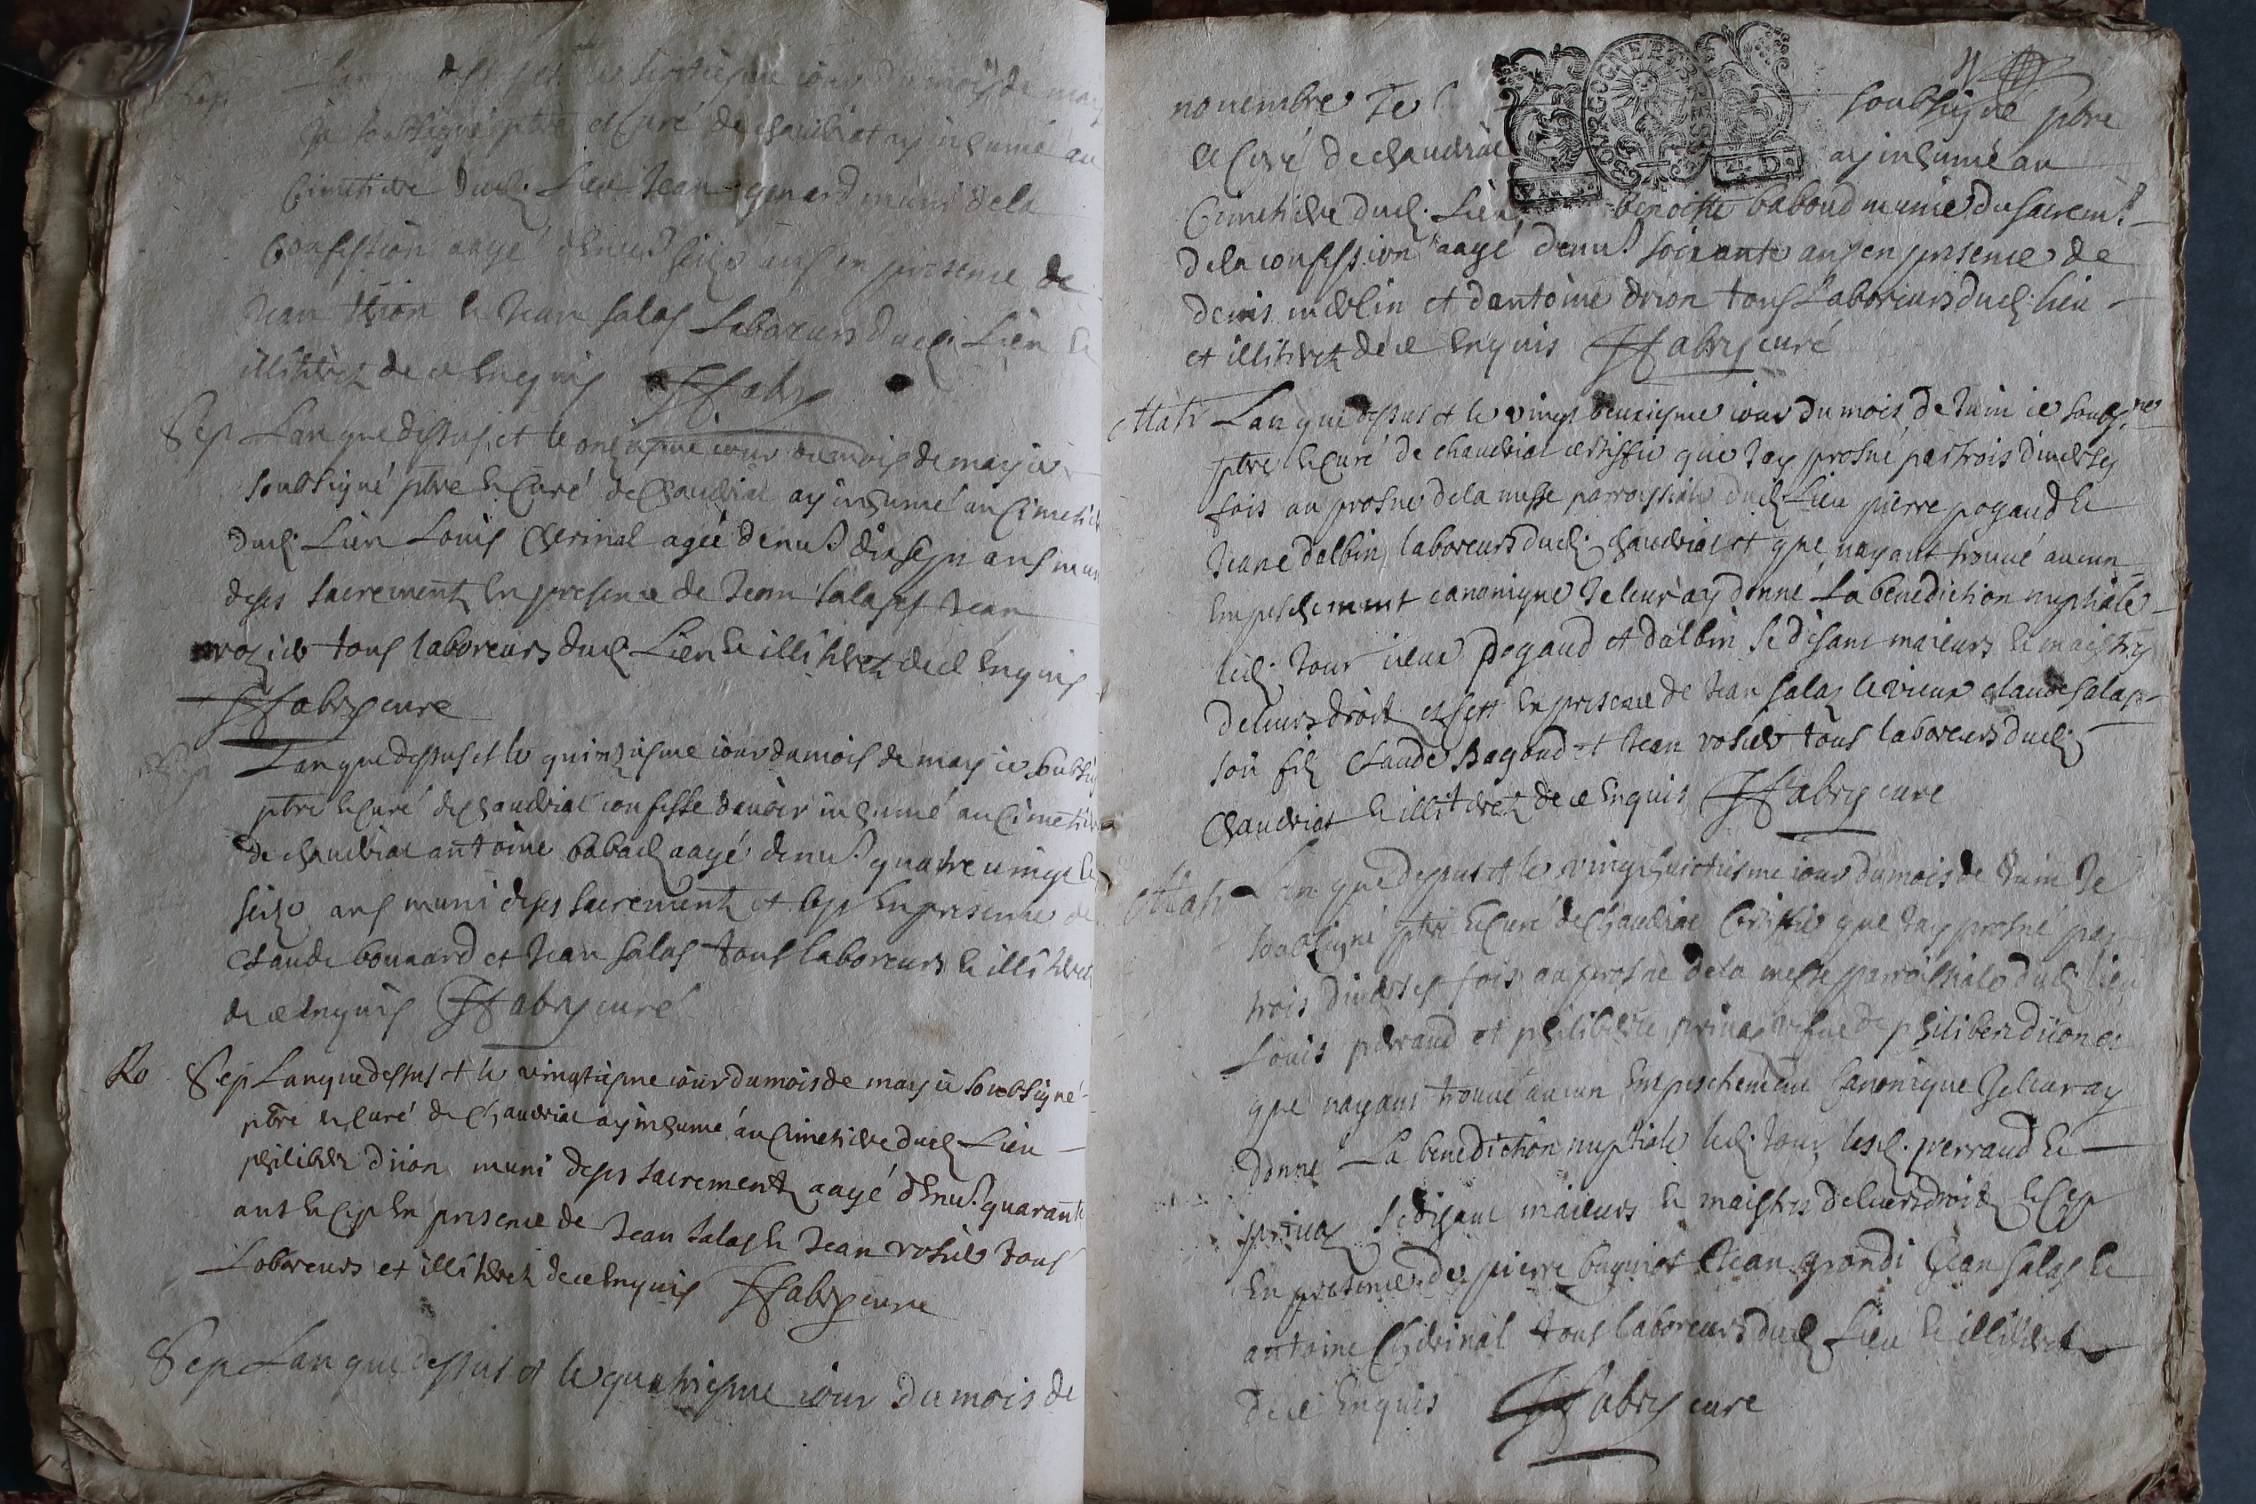 Sep Lan que dessus et le septiesme iour du mois de may
Je soubsigné ptre et curé de chaudriat ay inhumé au
Cimetiere dud. Lieu Jean muni de la
confession aagé denu. seize ans en presence de
Jean et Jean salas Laboreurs dud. Lieu et
illitérez de ce Enquis Fabry
Sep Lan que dessus et le onziesme iour du mois de may ie
soubsigné ptre et Curé de chaudriat ay inhumé au Cimetiere
dud. Lieu Louis Cherinal agée denu. ans muni
de ses sacrements En presence de Jean salas et Jean
rozier tous laboreurs dud. Lieu et illitérez de ce Enquis
Fabry curé
Sep Lan que dessus et le quinziesme iour du mois de may ie soubsig
ptre et Curé de chaudriat confesse davoir inhumé au Cimetiere
de chaudriat antoine aagé denu. quatre vingt et
seize ans muni de ses sacrements et En presence de
Claude bonnard et Jean salas tous laboreurs et illiterez
de ce Enquis Fabry curé
Ro Sep Lan que dessus et le vingtiesme iour du mois de may ie soubsigné
ptre et Curé de Chaudriat ay inhumé au Cimetiere dud. Lieu
philibert drion muni de ses sacrements aagé denu. quarante
ans En presence de Jean salas et Jean rosier tous
Laboreurs et illitérez de ce Enquis Fabry curé
Sep Lan que dessus et le quatriesme iour du mois de
novembre Je soubsigné ptre
et Curé de chaudriat ay inhumé au
Cimetiere dud. Lieu benoitte baboud munie du sacrem.
de la confession aagé denu. soixante ans en presence de
denis merlin et dantoine drion tous Laboreurs dud. lieu
et illiterez de ce Enquis Fabry curé
Lan que dessus et le vingt iour du mois de Juin ie soubsigné
ptre et Curé de chaudriat certiffie que Jay prosné par trois diverses
fois au prosne de la messe parroissiale dud. Lieu pierre pogaud et
Jeane dalbin laboreurs dud. chaudriat et que nayant trouvé aucun
Empeschement canonique Je leur ay donné La benediction nuptiale
led. Jour iceux pogaud et dalbin se disant maieurs et maistres
de leurs droits En presence de Jean salas le vieux claude salas
son fils Claude Bagoud et Jean rosier tous laboreurs dud.
Chaudriat et illiterez de ce Enquis Fabry curé
Lan que dessus et le vingt huictiesme iour du mois de Juin Je
soubsigné ptre et Curé de Chaudriat Certiffie que Jay prosné par
trois diverses fois au prosne de la messe parroissiale dud. lieu
Louis perraud et philiberte privas vefve de philibert drion et
que nayant trouvé aucun Empeschement Canonique Je leur ay
donné La benediction nuptiale led. Jour lesd. perraud et
privas se disant maieurs et maistres de leurs droits
En presence de pierre Jean grandi Jean salas et
antoine Cherinal tous laboreurs dud. Lieu et illiterez
de ce Enquis Fabry curé